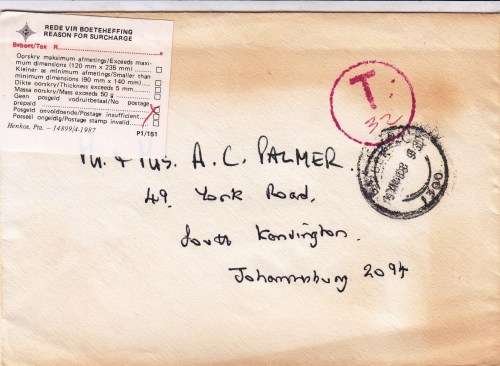 REDE VIR BOETEHEFFING
REASON FOR SURCHARGE
Beboet/Tax R
Oorskry maksimum afmetings/Exceeds maxi-
mum dimensions (120 mm x 235 mm)
Kleiner as minimum afmetings/Smaller than
minimum dimensions (90 mm x 140 mm)
Dikte oorskry/Thickness exceeds 5 mm
Massa oorskry/Mass exceeds 50 g
Geen posgeld vooruitbetaal/No postage
prepaid
Posgeld onvoldoende/Postage insufficient
Posseël ongeldig/Postage stamp invalid
Henkos, Pta. – 14899/4-1987
P1/161
T:
32
M. & Mrs. A. C. PALMER.
49 York Road,
South Kensington.
Johannesburg 2094